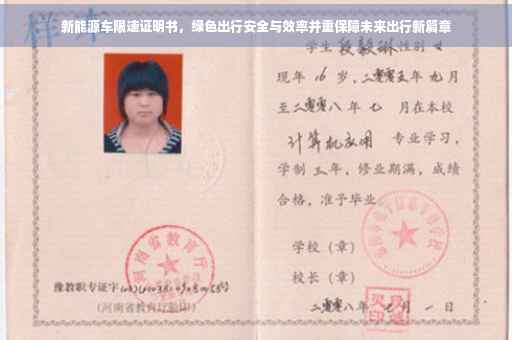 新能源车限速证明书，绿色出行安全与效率并重保障未来出行新篇章
样本
学生 段毅琳 性别 女
现年 16 岁，二零零五年 九月
至二零零八年 七 月在本校
计算机应用 专业学习，
学制 三 年，修业期满，成绩
合格，准予毕业
学校（章）
河南省教育厅
校长（章）
豫教职专证字
(河南省教育厅验印)
二零零八年 七 月 一 日